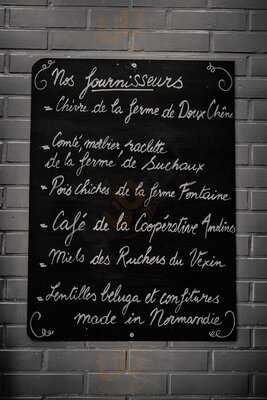 Nos fournisseurs
= Chèvre de la ferme de Doux Chêne
= Comté, morbier, raclette
de la ferme de Suchaux
= Pois chiches de la ferme Fontaine
= Café de la Coopérative Andines
= Miels des Ruchers du Vexin
= Lentilles beluga et confitures
made in Normandie